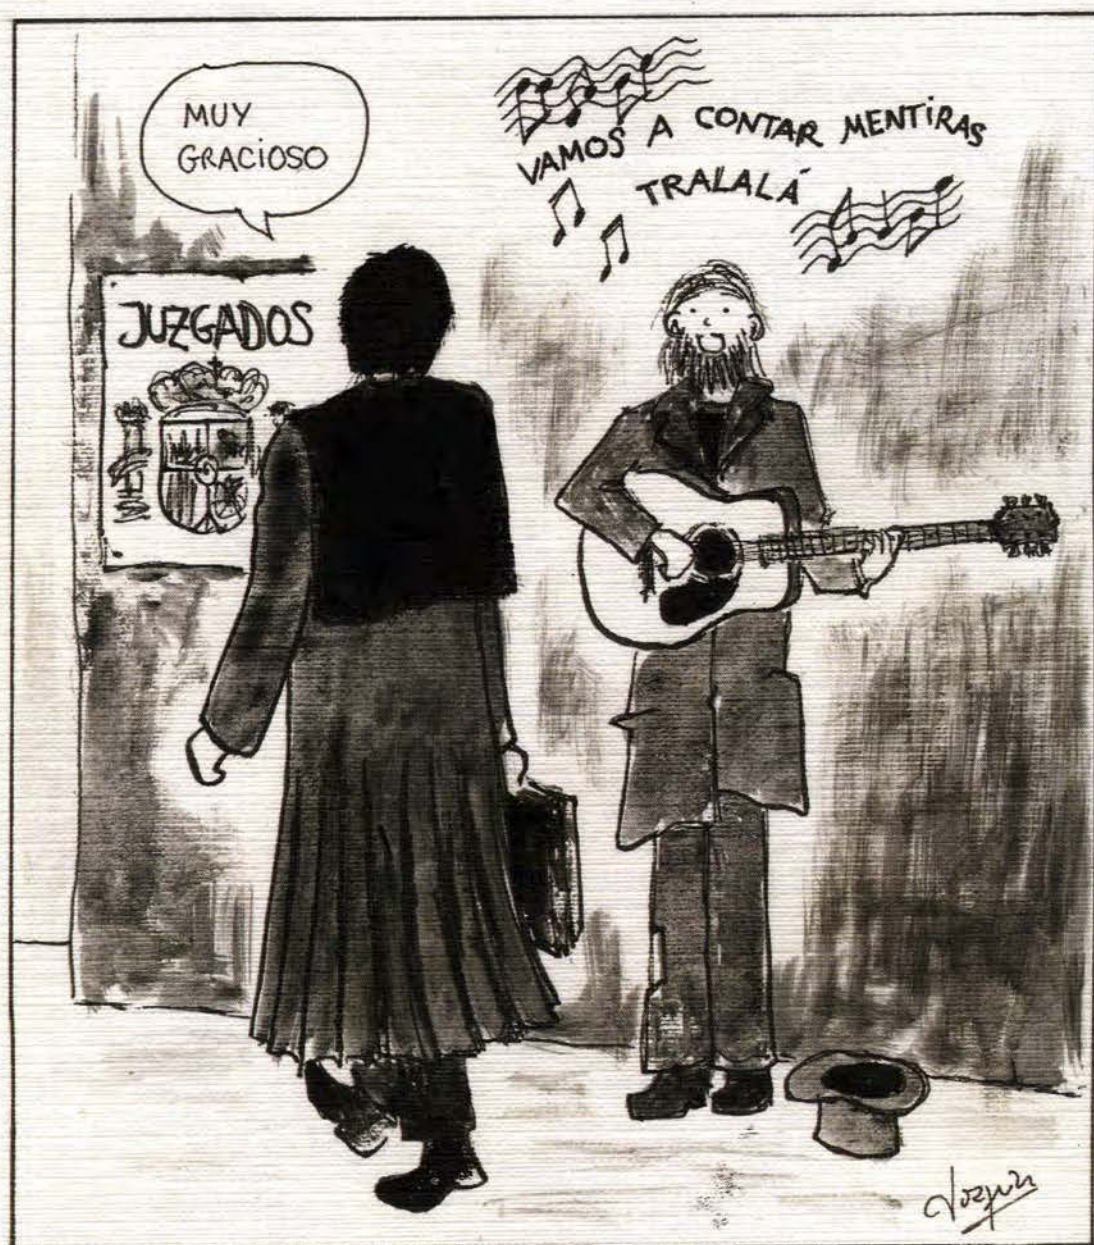 MUY
GRACIOSO
VAMOS A CONTAR MENTIRAS
TRALALÁ
JUZGADOS